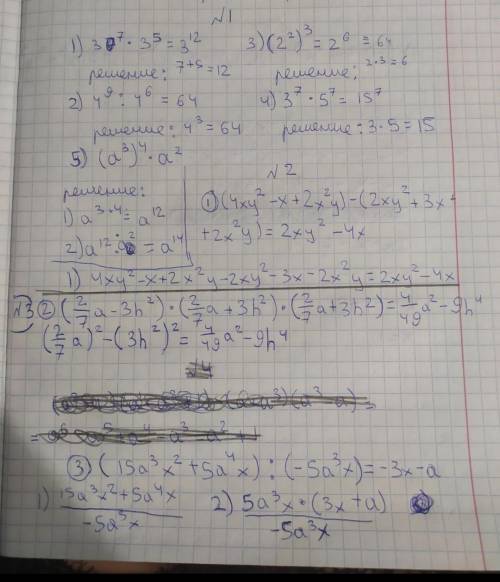 №1
1) 3⁷ · 3⁵ = 3¹² 3) (2²)³ = 2⁶ = 64
решение: 7+5=12 решение: 2·3=6
2) 4⁹ : 4⁶ = 64 4) 3⁷ · 5⁷ = 15⁷
решение: 4³ = 64 решение: 3·5=15
5) (a³)⁴ · a²
решение:
1) a³·⁴ = a¹²
2) a¹² · a² = a¹⁴
№2
① (4xy² - x + 2x²y) - (2xy² + 3x +
+ 2x²y) = 2xy² - 4x
1) 4xy² - x + 2x²y - 2xy² - 3x - 2x²y = 2xy² - 4x
№3 ② (2/7 a - 3h²) · (2/7 a + 3h²) · (2/7 a + 3h²) = 4/49 a² - 9h⁴
(2/7 a)² - (3h²)² = 4/49 a² - 9h⁴
③ (15a³x² + 5a⁴x) : (-5a³x) = -3x - a
1) 15a³x² + 5a⁴x / -5a³x 2) 5a³x · (3x + a) / -5a³x